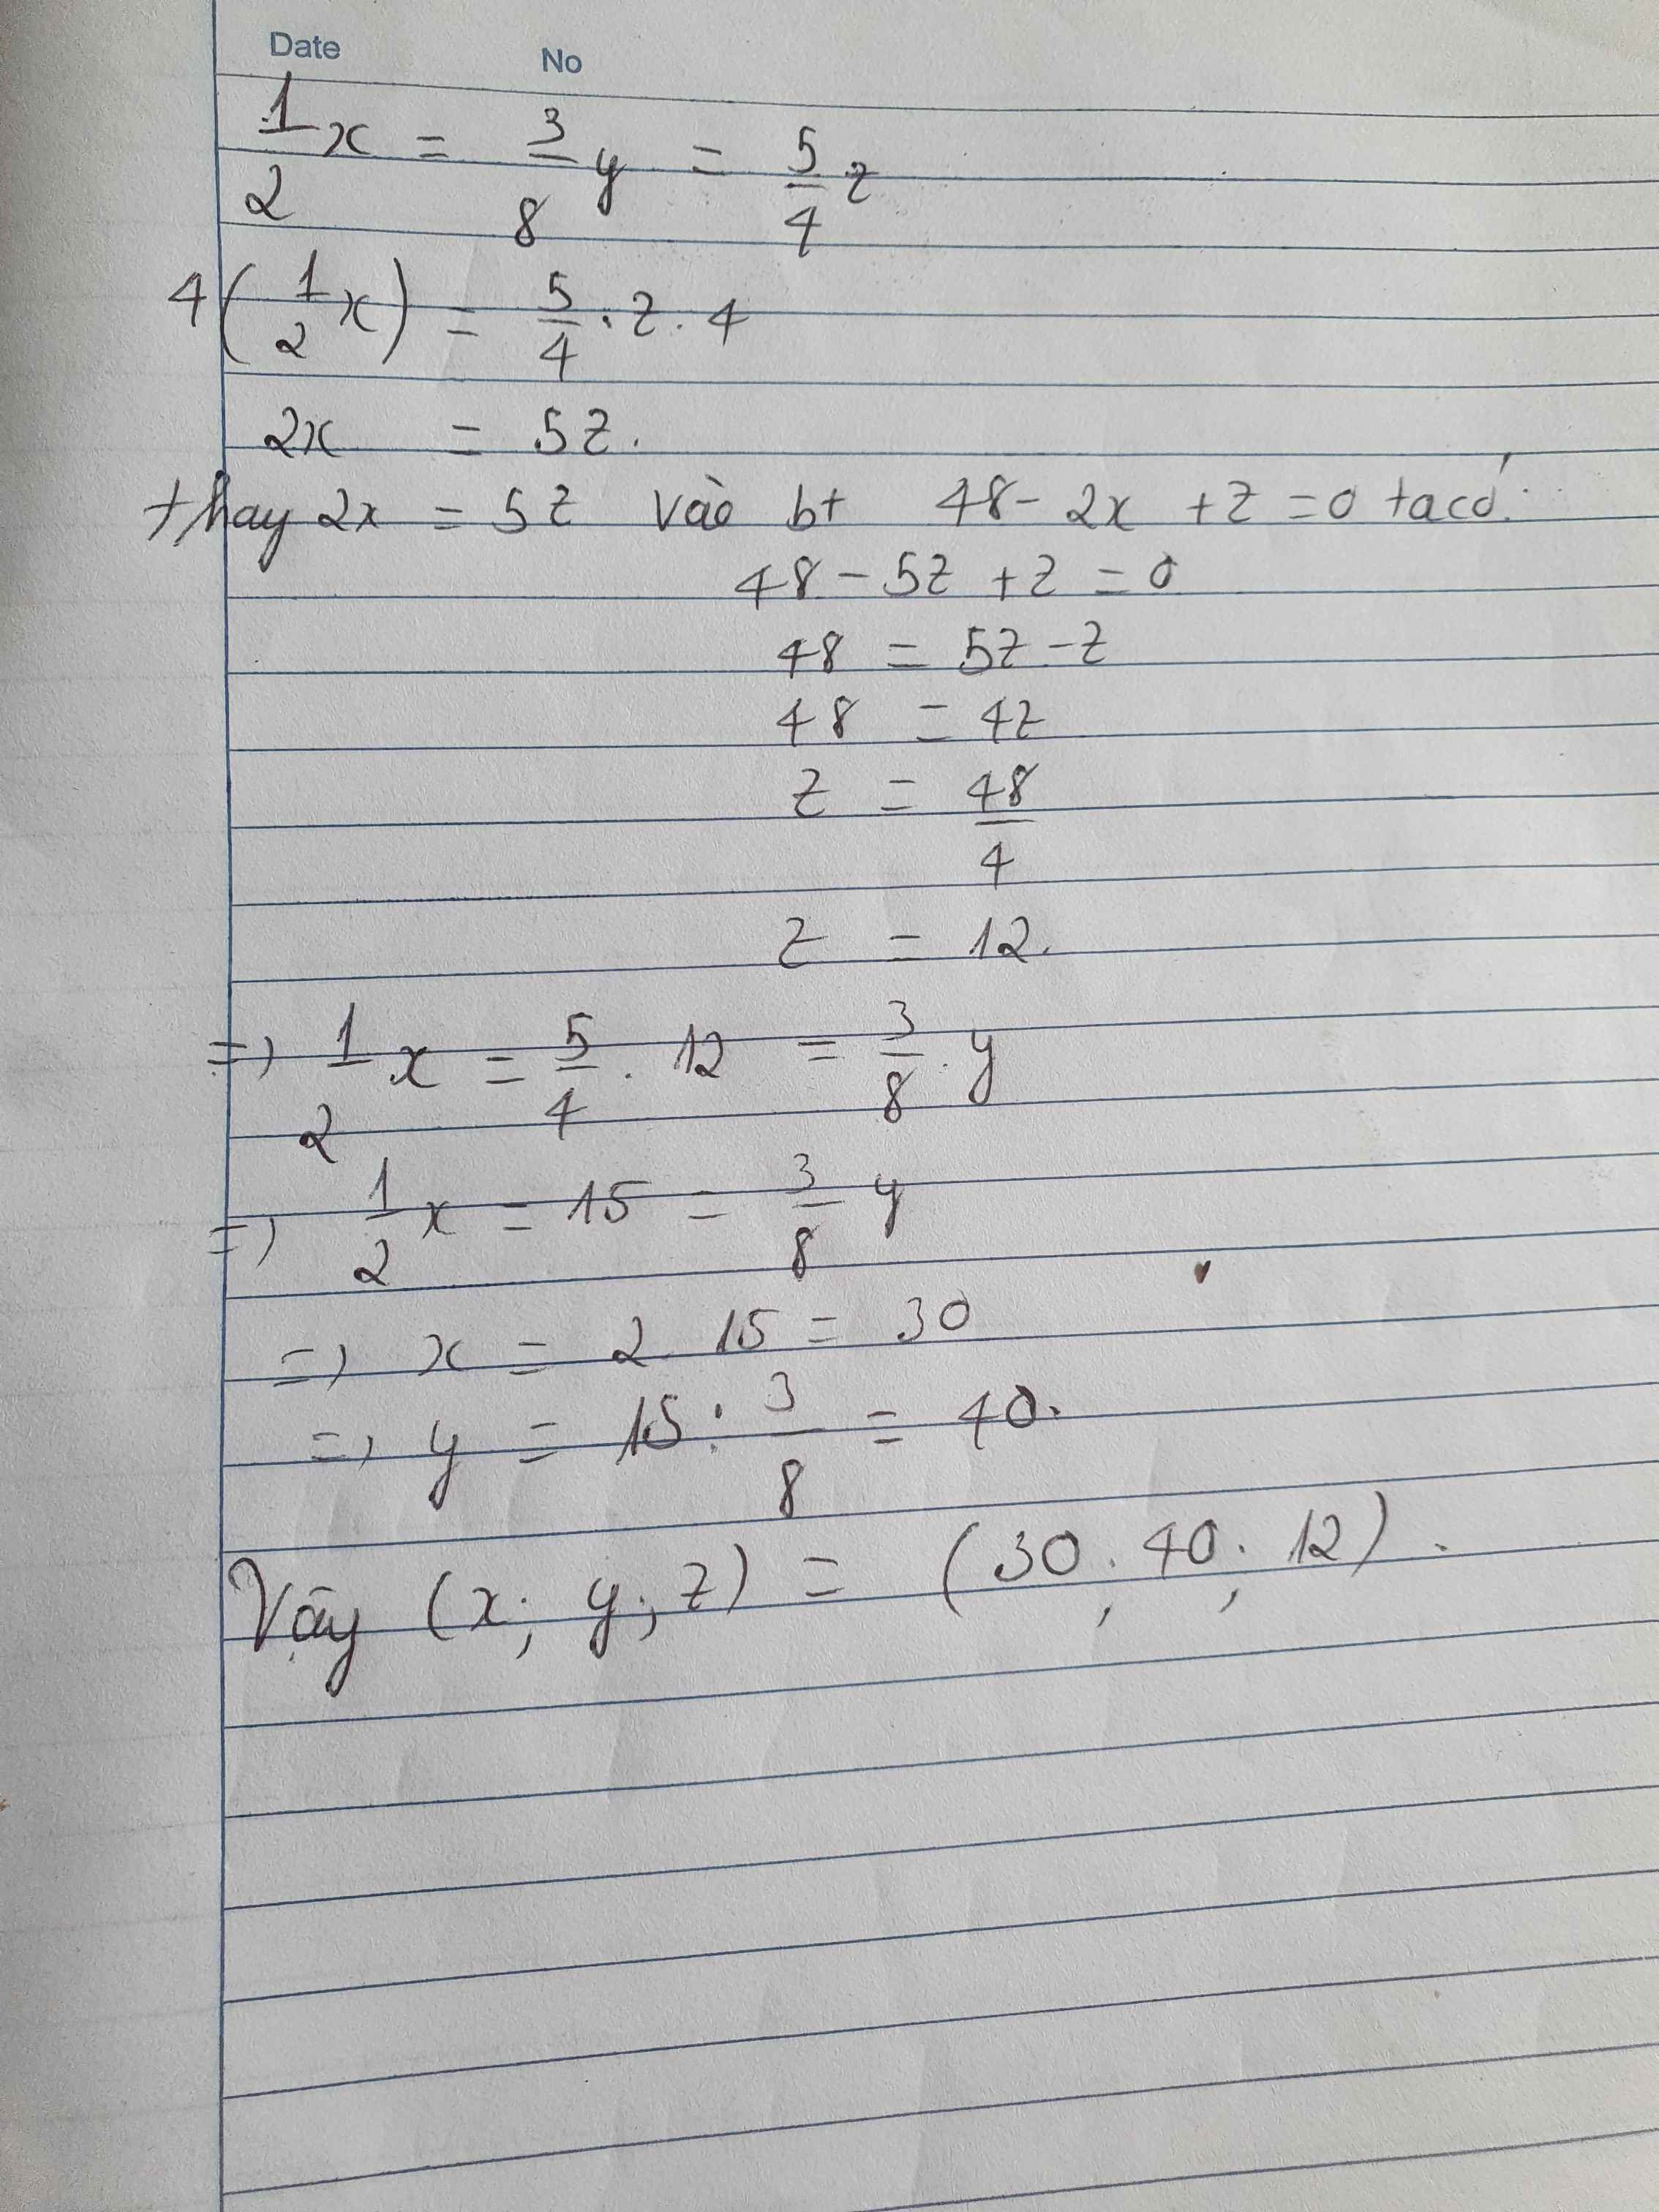 Date No
1/2 x = 3/8 y = 5/4 z
4(1/2 x) = 5/4 . z . 4
2x = 5z.
thay 2x = 5z vào bt 48 - 2x + z = 0 ta có:
48 - 5z + z = 0
48 = 5z - z
48 = 4z
z = 48/4
z = 12.
=> 1/2 x = 5/4 . 12 = 3/8 . y
=> 1/2 x = 15 = 3/8 y
=> x = 2 . 15 = 30
=> y = 15 : 3/8 = 40.
Vậy (x; y; z) = (30; 40; 12).